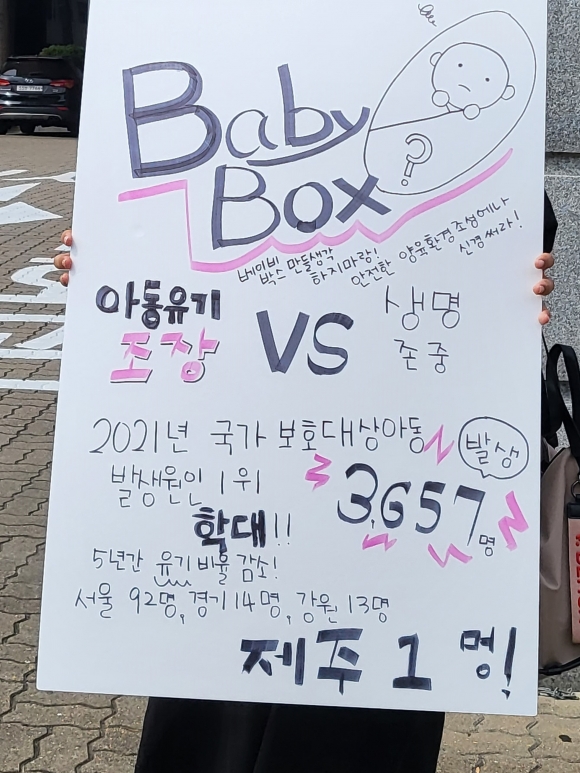 Baby
Box
?
베이비
박스 만들생각
하지마랑!
안전한 양육환경 조성에나
신경써라!
아동유기
조장
VS
생명
존중
2021년 국가 보호대상아동
발생
발생원인 1위
3,657명
학대!!
5년간 유기 비율 감소!
서울 92명, 경기 14명, 강원 13명
제주 1 명!